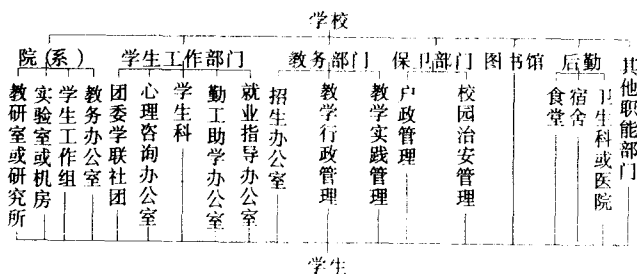 学校
院(系)
学生工作部门
教务部门
保卫部门
图书馆
后勤
其他职能部门
教研室或研究所
实验室或机房
学生工作组
教务办公室
团委学联社团
心理咨询办公室
学生科
勤工助学办公室
就业指导办公室
招生办公室
教学行政管理
教学实践管理
户政管理
校园治安管理
食堂
宿舍
卫生科或医院
学生